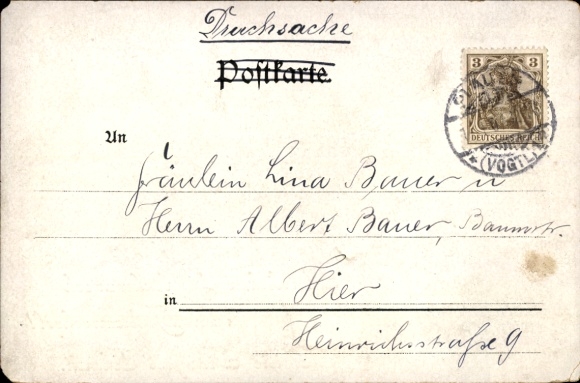 Drucksache
Postkarte
3 3
DEUTSCHES REICH
(VOGTL)
An
Fräulein Lina Bauer u
Herrn Albert Bauer, Baumstr.
in Hier
Heinrichstraße 9